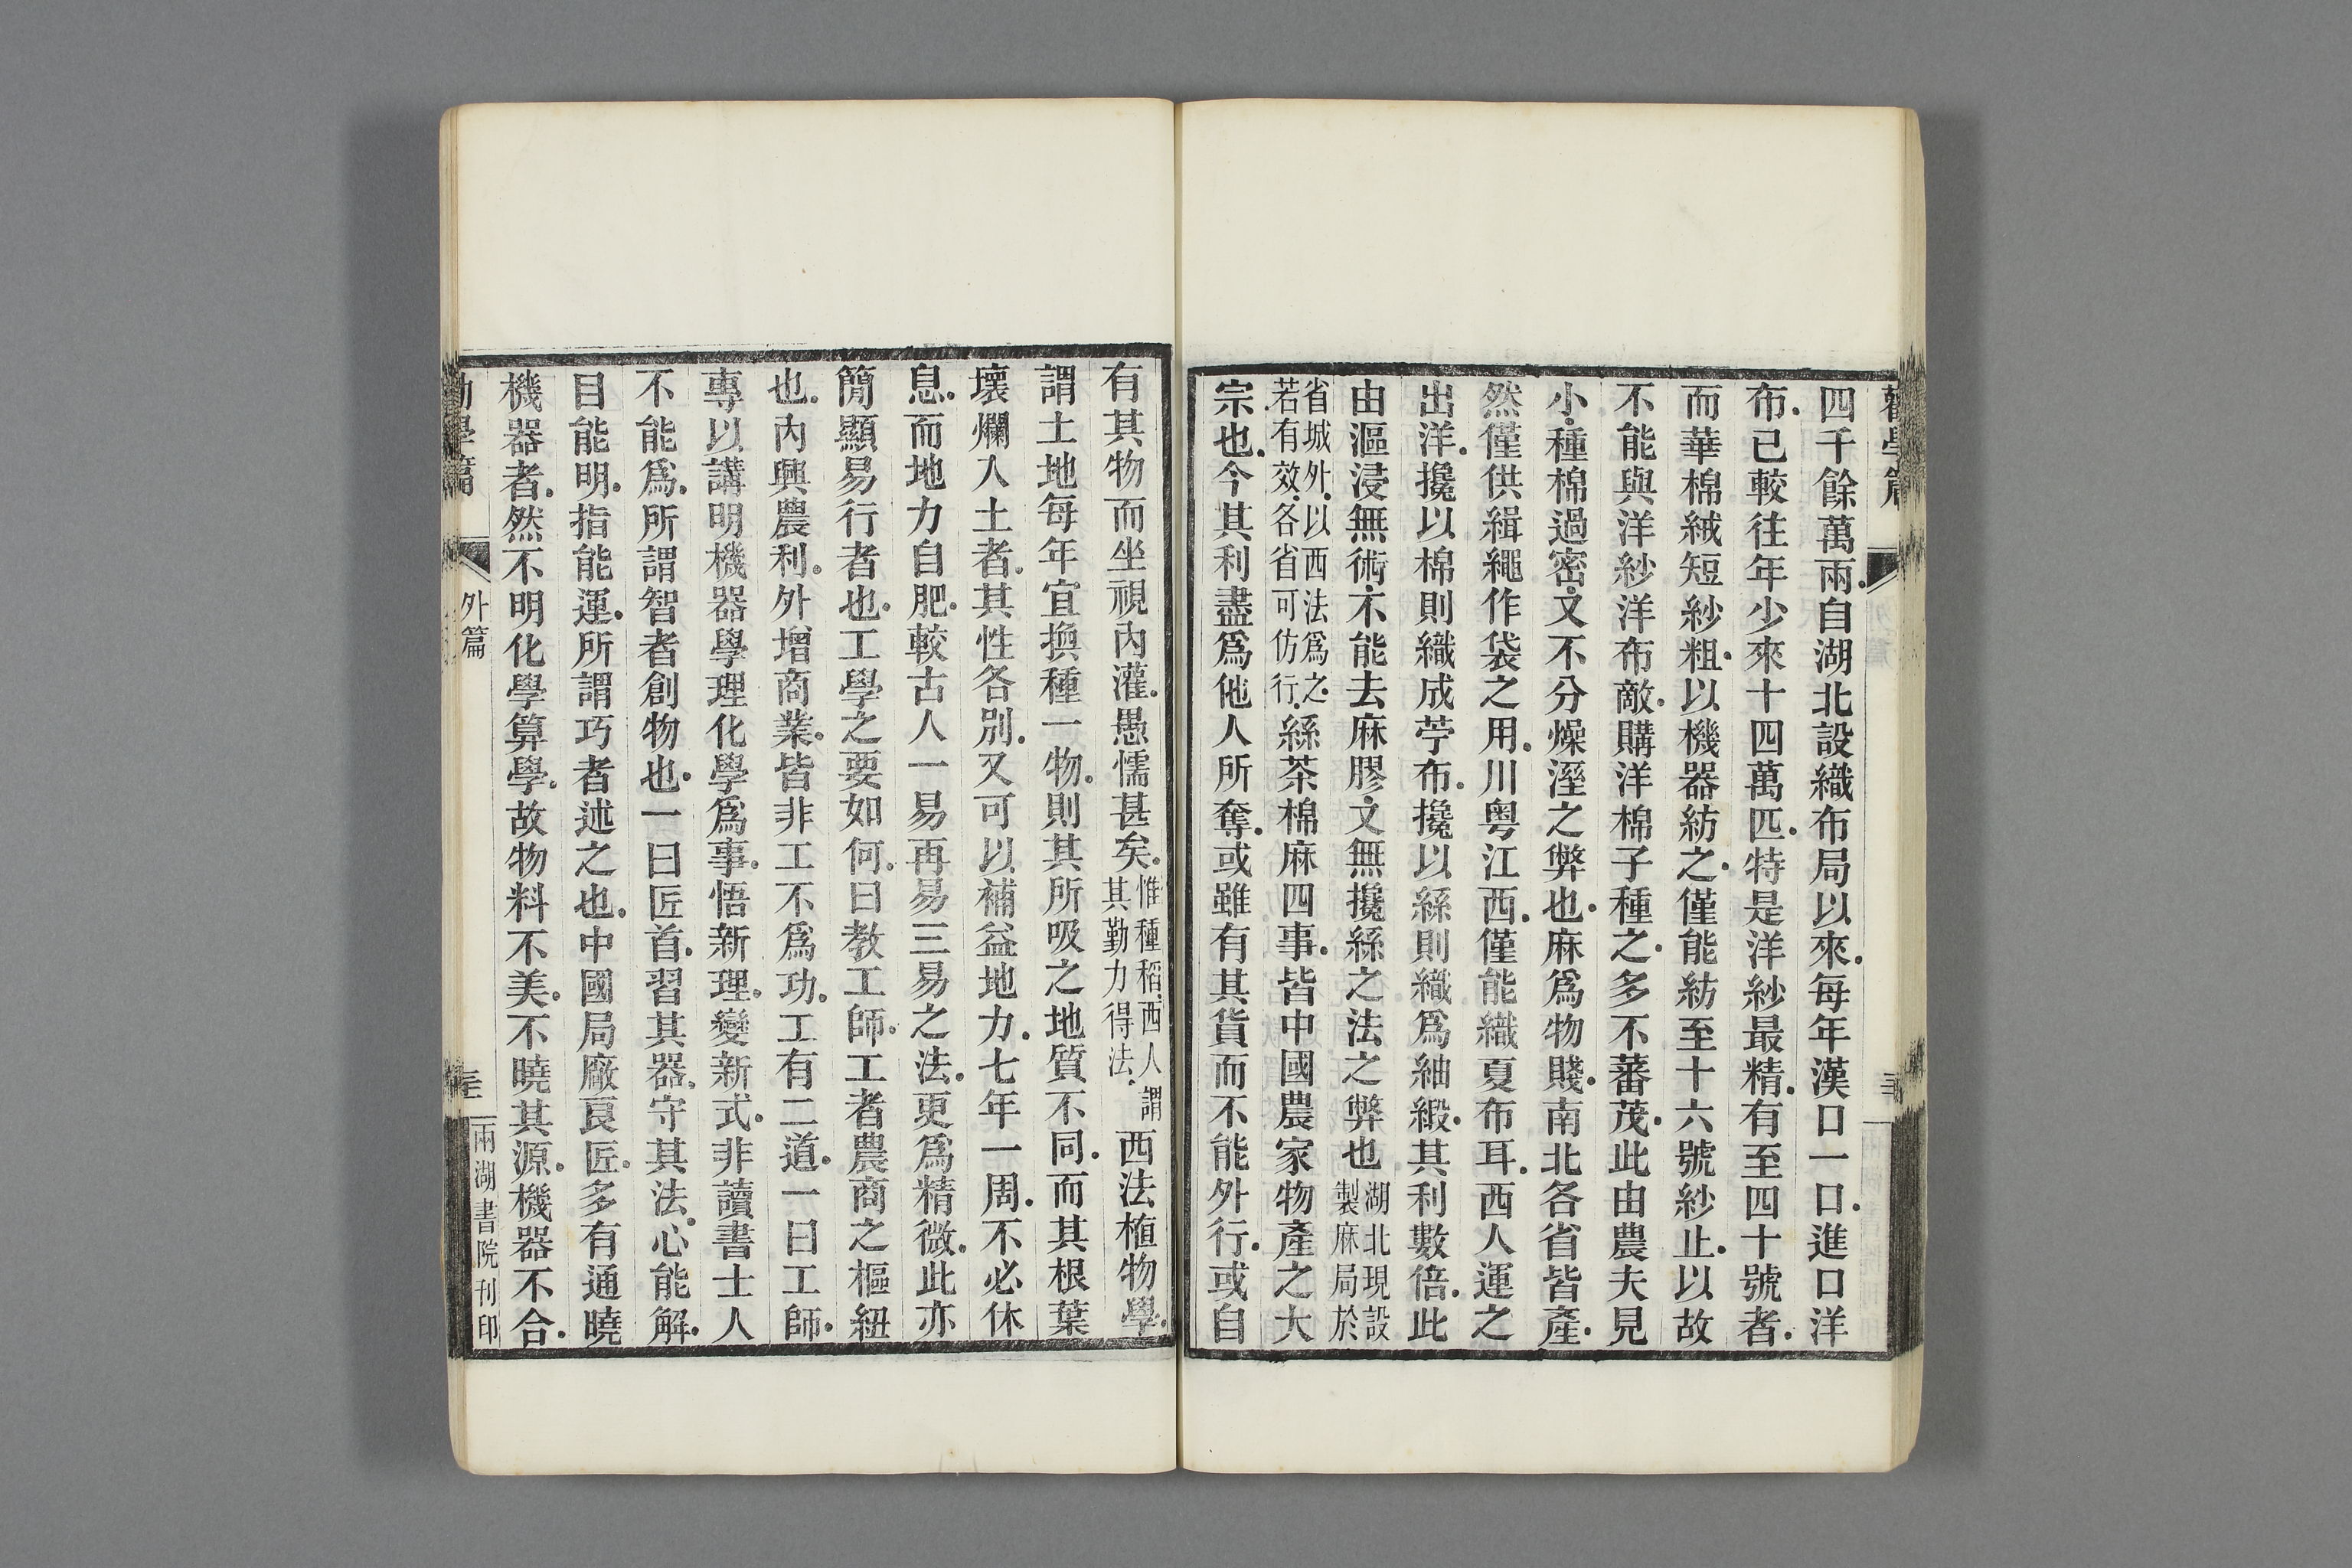 四千餘萬兩自湖北設織布局以來每年漢口一口進口洋
布已較往年少來十四萬匹特是洋紗最精有至四十號者
而華棉絨短紗粗以機器紡之僅能紡至十六號紗止以故
不能與洋紗洋布敵購洋棉子種之多不蕃茂此由農夫見
小種棉過密又不分燥溼之弊也麻爲物賤南北各省皆產
然僅供緝繩作袋之用川粵江西僅能織夏布耳西人運之
出洋攙以棉則織成苧布攙以絲則織爲紬緞其利數倍此
由漚浸無術不能去麻膠又無攙絲之法之弊也湖北現設製麻局於
省城外以西法爲之若有效各省可仿行絲茶棉麻四事皆中國農家物產之大
宗也今其利盡爲他人所奪或雖有其貨而不能外行或自
有其物而坐視內灌愚懦甚矣惟種稻西人謂其勤力得法西法植物學
謂土地每年宜換種一物則其所吸之地質不同而其根葉
壞爛入土者其性各別又可以補益地力七年一周不必休
息而地力自肥較古人一易再易三易之法更爲精微此亦
簡顯易行者也工學之要如何曰教工師工者農商之樞紐
也內興農利外增商業皆非工不爲功工有二道一曰工師
專以講明機器學理化學爲事悟新理變新式非讀書士人
不能爲所謂智者創物也一曰匠首習其器守其法心能解
目能明指能運所謂巧者述之也中國局廠良匠多有通曉
機器者然不明化學算學故物料不美不曉其源機器不合
勸學篇 外篇 兩湖書院刊印